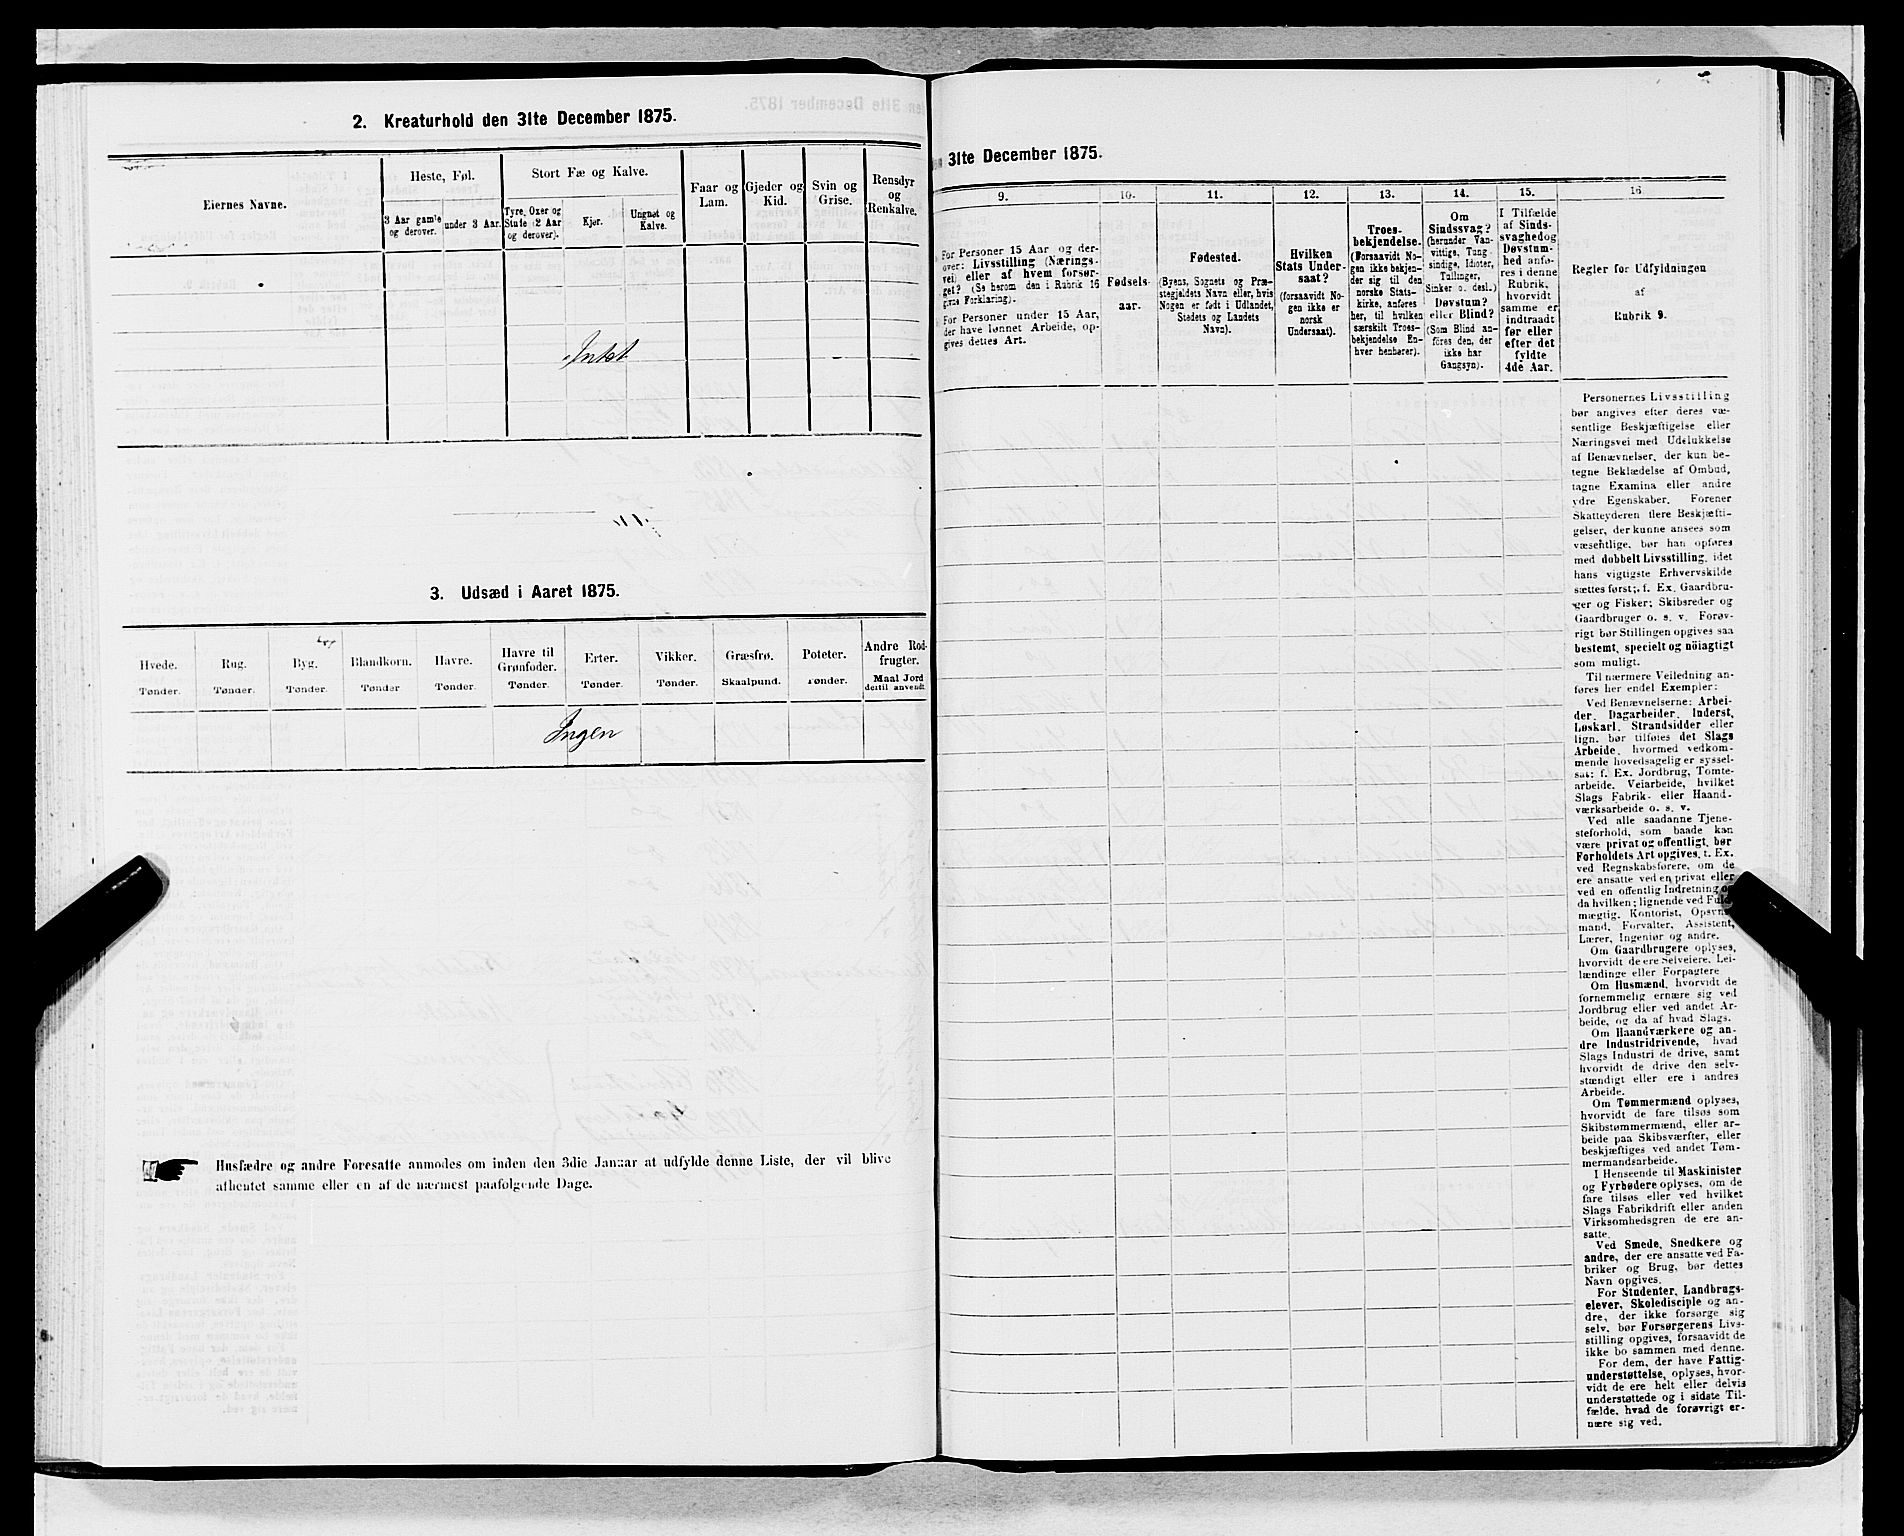 2. Kreaturhold den 31te December 1875.
Eiernes Navne.
Heste, Føl.
3 Aar gamle
og derover.
under 3 Aar.
Stort Fæ og Kalve.
Tyre, Oxer og
Stude (2 Aar
og derover).
Kjør.
Ungnøt og
Kalve.
Faar og
Lam.
Gjeder og
Kid.
Svin og
Grise.
Rensdyr
og
Renkalve.
Intet
3. Udsæd i Aaret 1875.
Hvede.
Tønder.
Rug.
Tønder.
Byg.
Tønder.
Blandkorn.
Tønder
Havre.
Tønder.
Havre til
Grønfoder.
Tønder.
Erter.
Tønder.
Vikker.
Tønder.
Græsfrø.
Skaalpund.
Poteter.
Tønder.
Andre Rod-
frugter.
Maal Jord
dertil anvendt
Ingen
Husfædre og andre Foresatte anmodes om inden den 3die Januar at udfylde denne Liste, der vil blive
afhentet samme eller en af de nærmest paafølgende Dage.
31te December 1875.
9.
For Personer 15 Aar og der-
over: Livsstilling (Nærings-
vei) eller af hvem forsør-
get? (Se herom den i Rubrik 16
givne Forklaring).
For Personer under 15 Aar,
der have lønnet Arbeide, op-
gives dettes Art.
10.
Fødsels-
aar.
11.
Fødested.
(Byens, Sognets og Præ-
stegjeldets Navn eller, hvis
Nogen er født i Udlandet,
Stedets og Landets
Navn).
12.
Hvilken
Stats Under-
saat?
(forsaavidt No-
gen ikke er
norsk
Undersaat).
13.
Troes-
bekjendelse.
(Forsaavidt No-
gen ikke bekjen-
der sig til den
norske Stats-
kirke, anføres
her, til hvilken
særskilt Troes-
bekjendelse En-
hver henhører).
14.
Om
Sindssvag?
(herunder Van-
vittige, Tung-
sindige, Idioter,
Tullinger,
Sinker o. desl.)
Døvstum?
eller Blind?
(Som Blind an-
føres den, der
ikke har
Gangsyn).
15.
I Tilfælde
af Sinds-
svaghed og
Døvstum-
hed anfø-
res i denne
Rubrik,
hvorvidt
samme er
indtraadt
før eller
efter det
fyldte
4de Aar.
16
Regler for Udfyldningen
af
Rubrik 9.
Personernes Livsstilling
bør angives efter deres væ-
sentlige Beskjæftigelse eller
Næringsvei med Udelukkelse
af Benævnelser, der kun be-
tegne Beklædelse af Ombud,
tagne Examina eller andre
ydre Egenskaber. Forener
Skatteyderen flere Beskjæfti-
gelser, der kunne ansees som
væsentlige, bør han opføres
med dobbelt Livsstilling, idet
hans vigtigste Erhvervskilde
sættes først; f. Ex. Gaardbru-
ger og Fisker; Skibsreder og
Gaardbruger o. s. v. Forøv-
rigt bør Stillingen opgives saa
bestemt, specielt og nøiagtigt
som muligt.
Til nærmere Veiledning an-
føres her endel Exempler:
Ved Benævnelserne: Arbei-
der, Dagarbeider, Inderst,
Løskarl, Strandsidder eller
lign. bør tilføies det Slags
Arbeide, hvormed vedkom-
mende hovedsagelig er syssel-
sat; f. Ex. Jordbrug, Tomte-
arbeide, Veiarbeide, hvilket
Slags Fabrik- eller Haand-
værksarbeide o. s. v.
Ved alle saadanne Tjene-
steforhold, som baade kan
være privat og offentligt, bør
Forholdets Art opgives, f. Ex.
ved Regnskabsførere, om de
ere ansatte ved en privat eller
ved en offentlig Indretning og
da hvilken; lignende ved Fuld-
mægtig, Kontorist, Opsyns-
mand, Forvalter, Assistent,
Lærer, Ingeniør og andre.
Om Gaardbrugere oplyses,
hvorvidt de ere Selveiere, Lei-
lændinge eller Forpagtere
Om Husmænd, hvorvidt de
fornemmelig ernære sig ved
Jordbrug eller ved andet Ar-
beide, og da af hvad Slags.
Om Haandværkere og an-
dre Industridrivende, hvad
Slags Industri de drive, samt
hvorvidt de drive den selv-
stændigt eller ere i andres
Arbeide.
Om Tømmermænd oplyses,
hvorvidt de fare tilsøs som
Skibstømmermænd, eller ar-
beide paa Skibsværfter, eller
beskjæftiges ved andet Tøm-
mermandsarbeide.
I Henseende til Maskinister
og Fyrbødere oplyses, om de
fare tilsøs eller ved hvilket
Slags Fabrikdrift eller anden
Virksomhedsgren de ere an-
satte.
Ved Smede, Snedkere og
andre, der ere ansatte ved Fa-
briker og Brug, bør dettes
Navn opgives.
For Studenter, Landbrugs-
elever, Skoledisciple og an-
dre, der ikke forsørge sig
selv, bør Forsørgerens Livs-
stilling opgives, forsaavidt de
ikke bo sammen med denne.
For dem, der have Fattig-
understøttelse, oplyses, hvor-
vidt de ere helt eller delvis
understøttede og i sidste Til-
fælde, hvad de forøvrigt er-
nære sig ved.